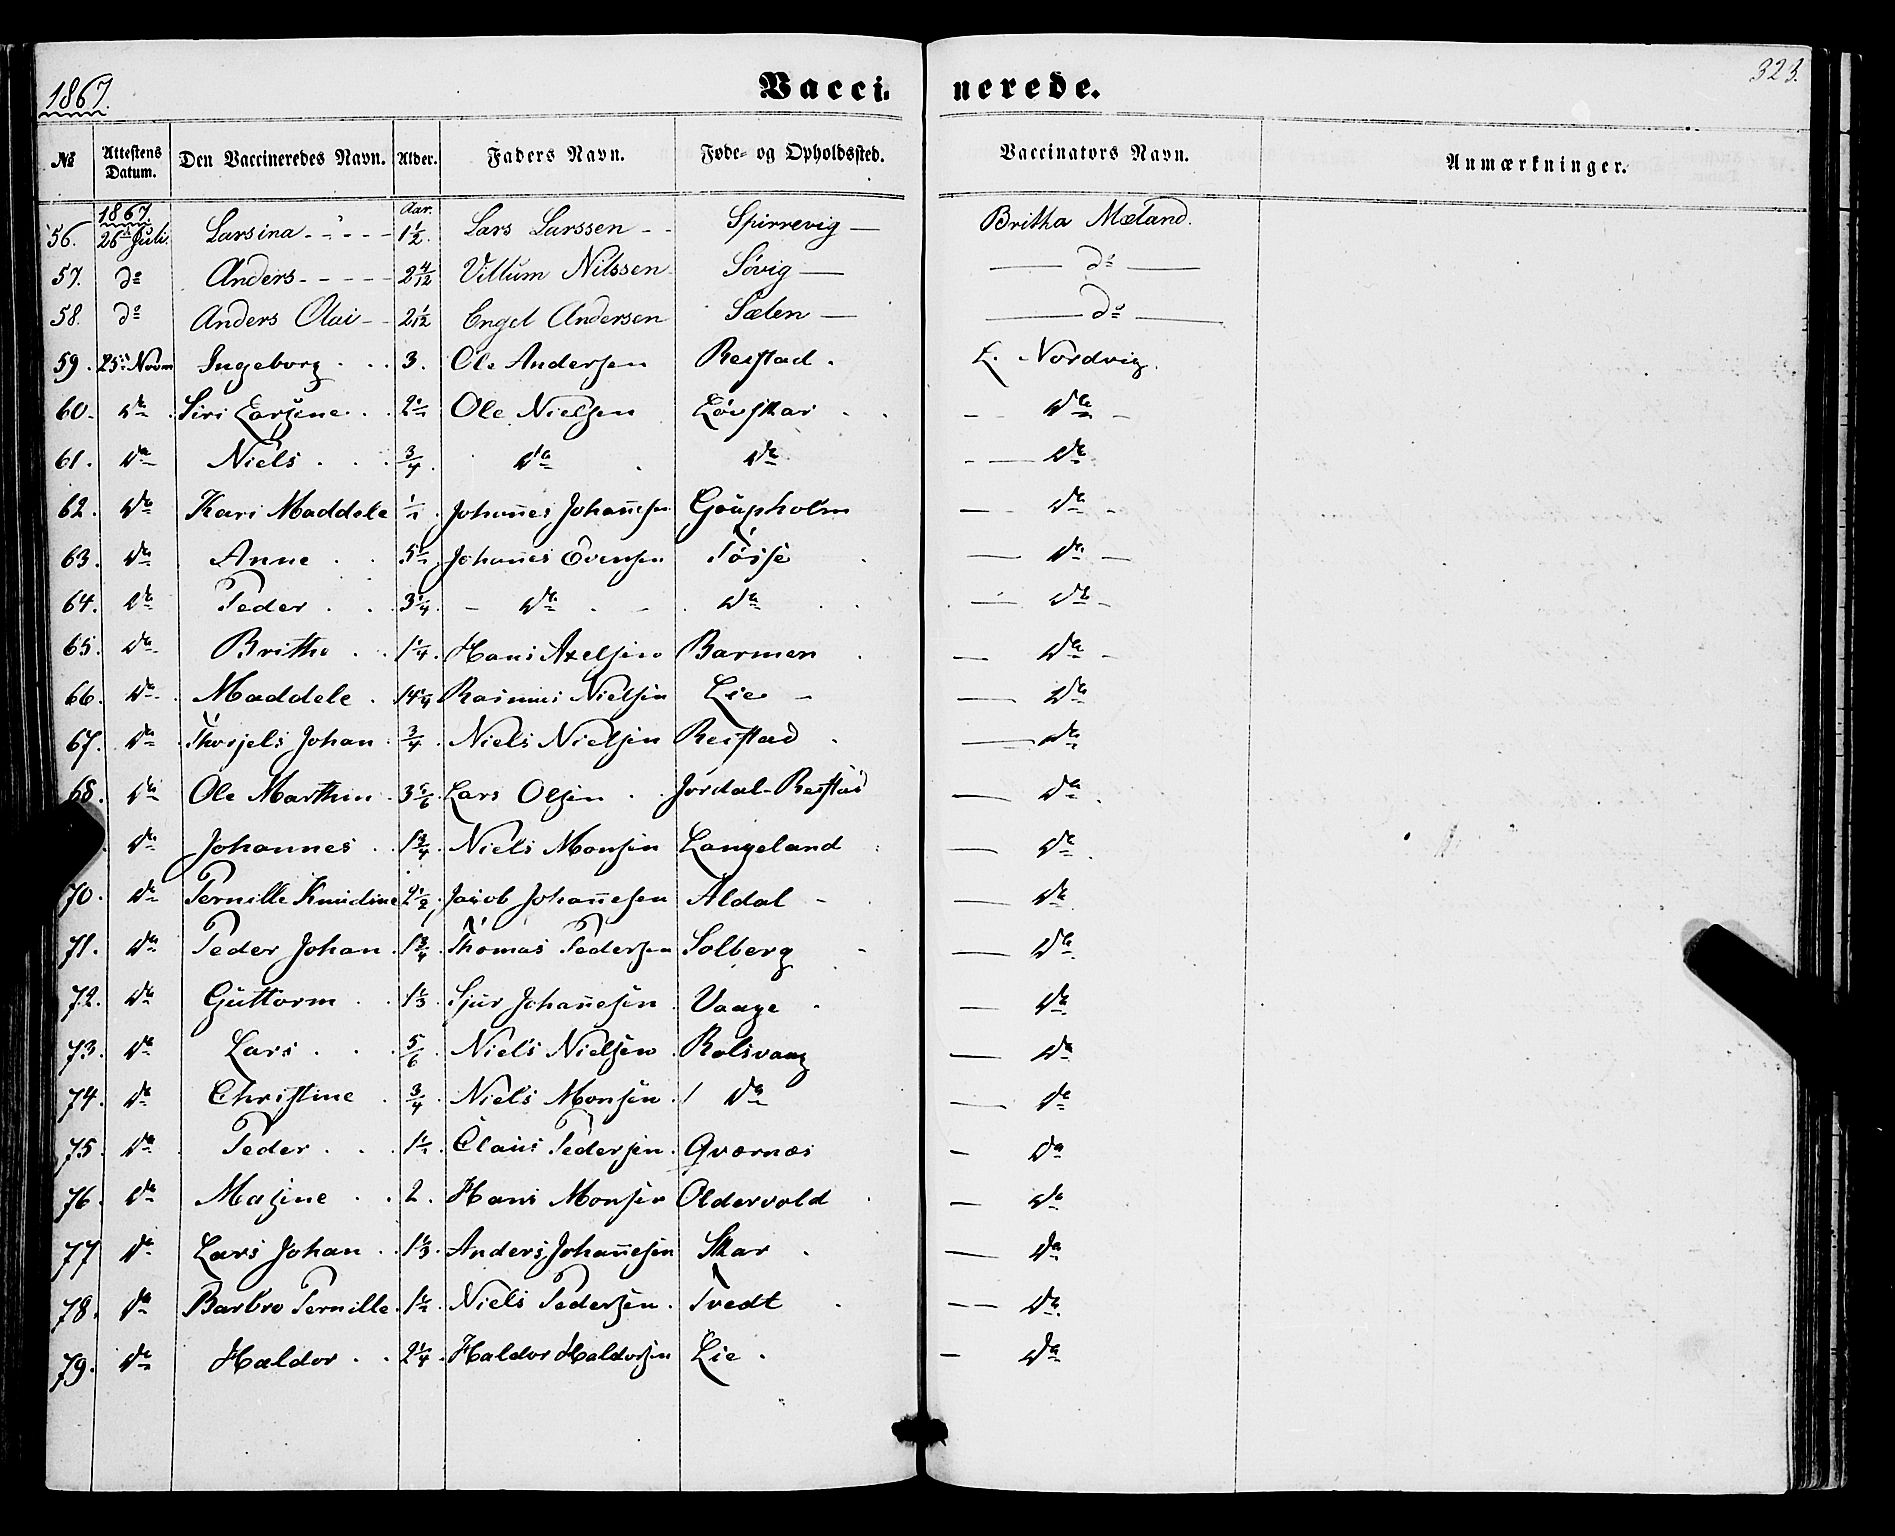 1867.
Vaccinerede.
323.
№ Attestens Datum. Den Vaccineredes Navn. Alder. Faders Navn. Føde- og Opholdssted. Vaccinators Navn. Anmærkninger.
1867. Aar.
56. 26de Juli. Larsina 1 1/2. Lars Larssen Spirrevig Britha Mæland.
57. do Anders 2 4/12 Villum Nilssen Søvig do
58. do Anders Olai 2 1/12 Engel Andersen Sælen do
59. 25de Novm Ingeborg 3. Ole Andersen Reistad L. Nordvig.
60. Do Siri Larsine 2 1/2 Ole Nielsen Løvskar Do
61. Do Niels 3/4 Do Do Do
62. Do Kari Maddele 1/2 Johannes Johannesen Gaupholm Do
63. Do Anne 5 1/2 Johannes Evensen Tøsse Do
64. Do Peder 3 1/4 Do Do Do
65. Do Brithe 1 1/4 Hans Axelsen Barmen Do
66. Do Maddele 14 1/4 Rasmus Nielsen Lie Do
67. Do Johan 3/4 Niels Nielsen Reistad Do
68. Do Ole Marthin 3 1/6 Lars Olsen Jordal-Reistad Do
Do Johannes 1 3/4 Niels Monsen Langeland Do
70. Do Pernille Knudine 2 1/2 Jacob Johannesen Aldal Do
71. Do Peder Johan 1 3/4 Thomas Pedersen Solberg Do
72. Do Guttorm 1 1/3 Sjur Johannesen Vaage Do
73. Do Lars 5/6 Niels Nielsen Rolsvaag Do
74. Do Christine 3/4 Niels Monsen Do Do
75. Do Peder 1 1/2 Claus Pedersen Qværnæs Do
76. Do Masine 2. Hans Monsen Oldervold Do
77 Do Lars Johan 1 1/3 Anders Johannesen Skar Do
78. Do Barbro Pernille 1 1/2 Niels Pedersen Tvedt Do
79. Do Haldor 2 1/4 Haldor Haldorsen Lie Do